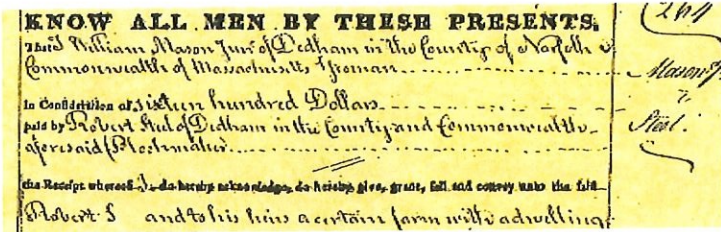 KNOW ALL MEN BY THESE PRESENTS,
264
That I William Mason Junr of Dedham in the County of Norfolk &
Commonwealth of Massachusetts Yeoman
Mason Jr
In Consideration of sixteen hundred Dollars
to
paid by Robert Steel of Dedham in the County and Commonwealth
Steel.
aforesaid Clockmaker
the Receipt whereof I do hereby acknowledge, do hereby give, grant, sell and convey unto the said
Robert S and to his heirs a certain farm with a dwelling